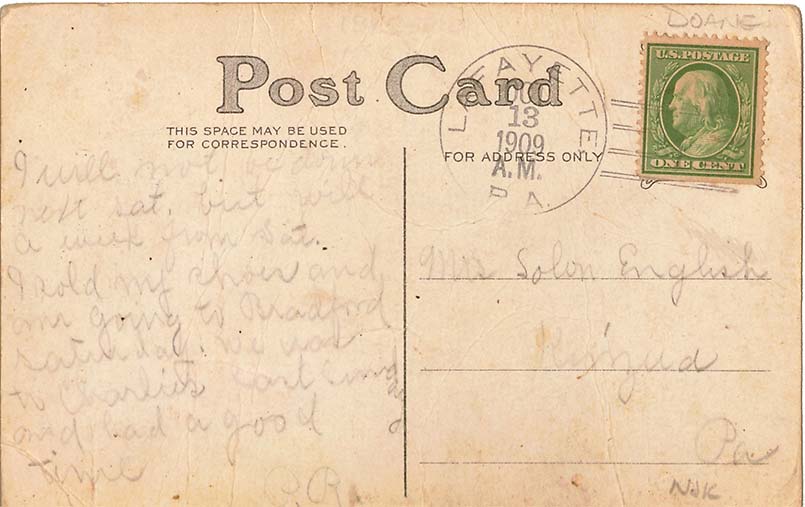 DOANE
Post Card
THIS SPACE MAY BE USED
FOR CORRESPONDENCE.
FOR ADDRESS ONLY
LAFAYETTE
13
1909
A.M.
PA.
U.S. POSTAGE
ONE CENT
I will not be down
next Sat. but will
a week from Sat.
I sold my shoes and
am going to Bradford
Saturday. We was
to Charlies last Sunday
and had a good
time
P.R.
Mrs Solon English
Kinzua
Pa
NJK